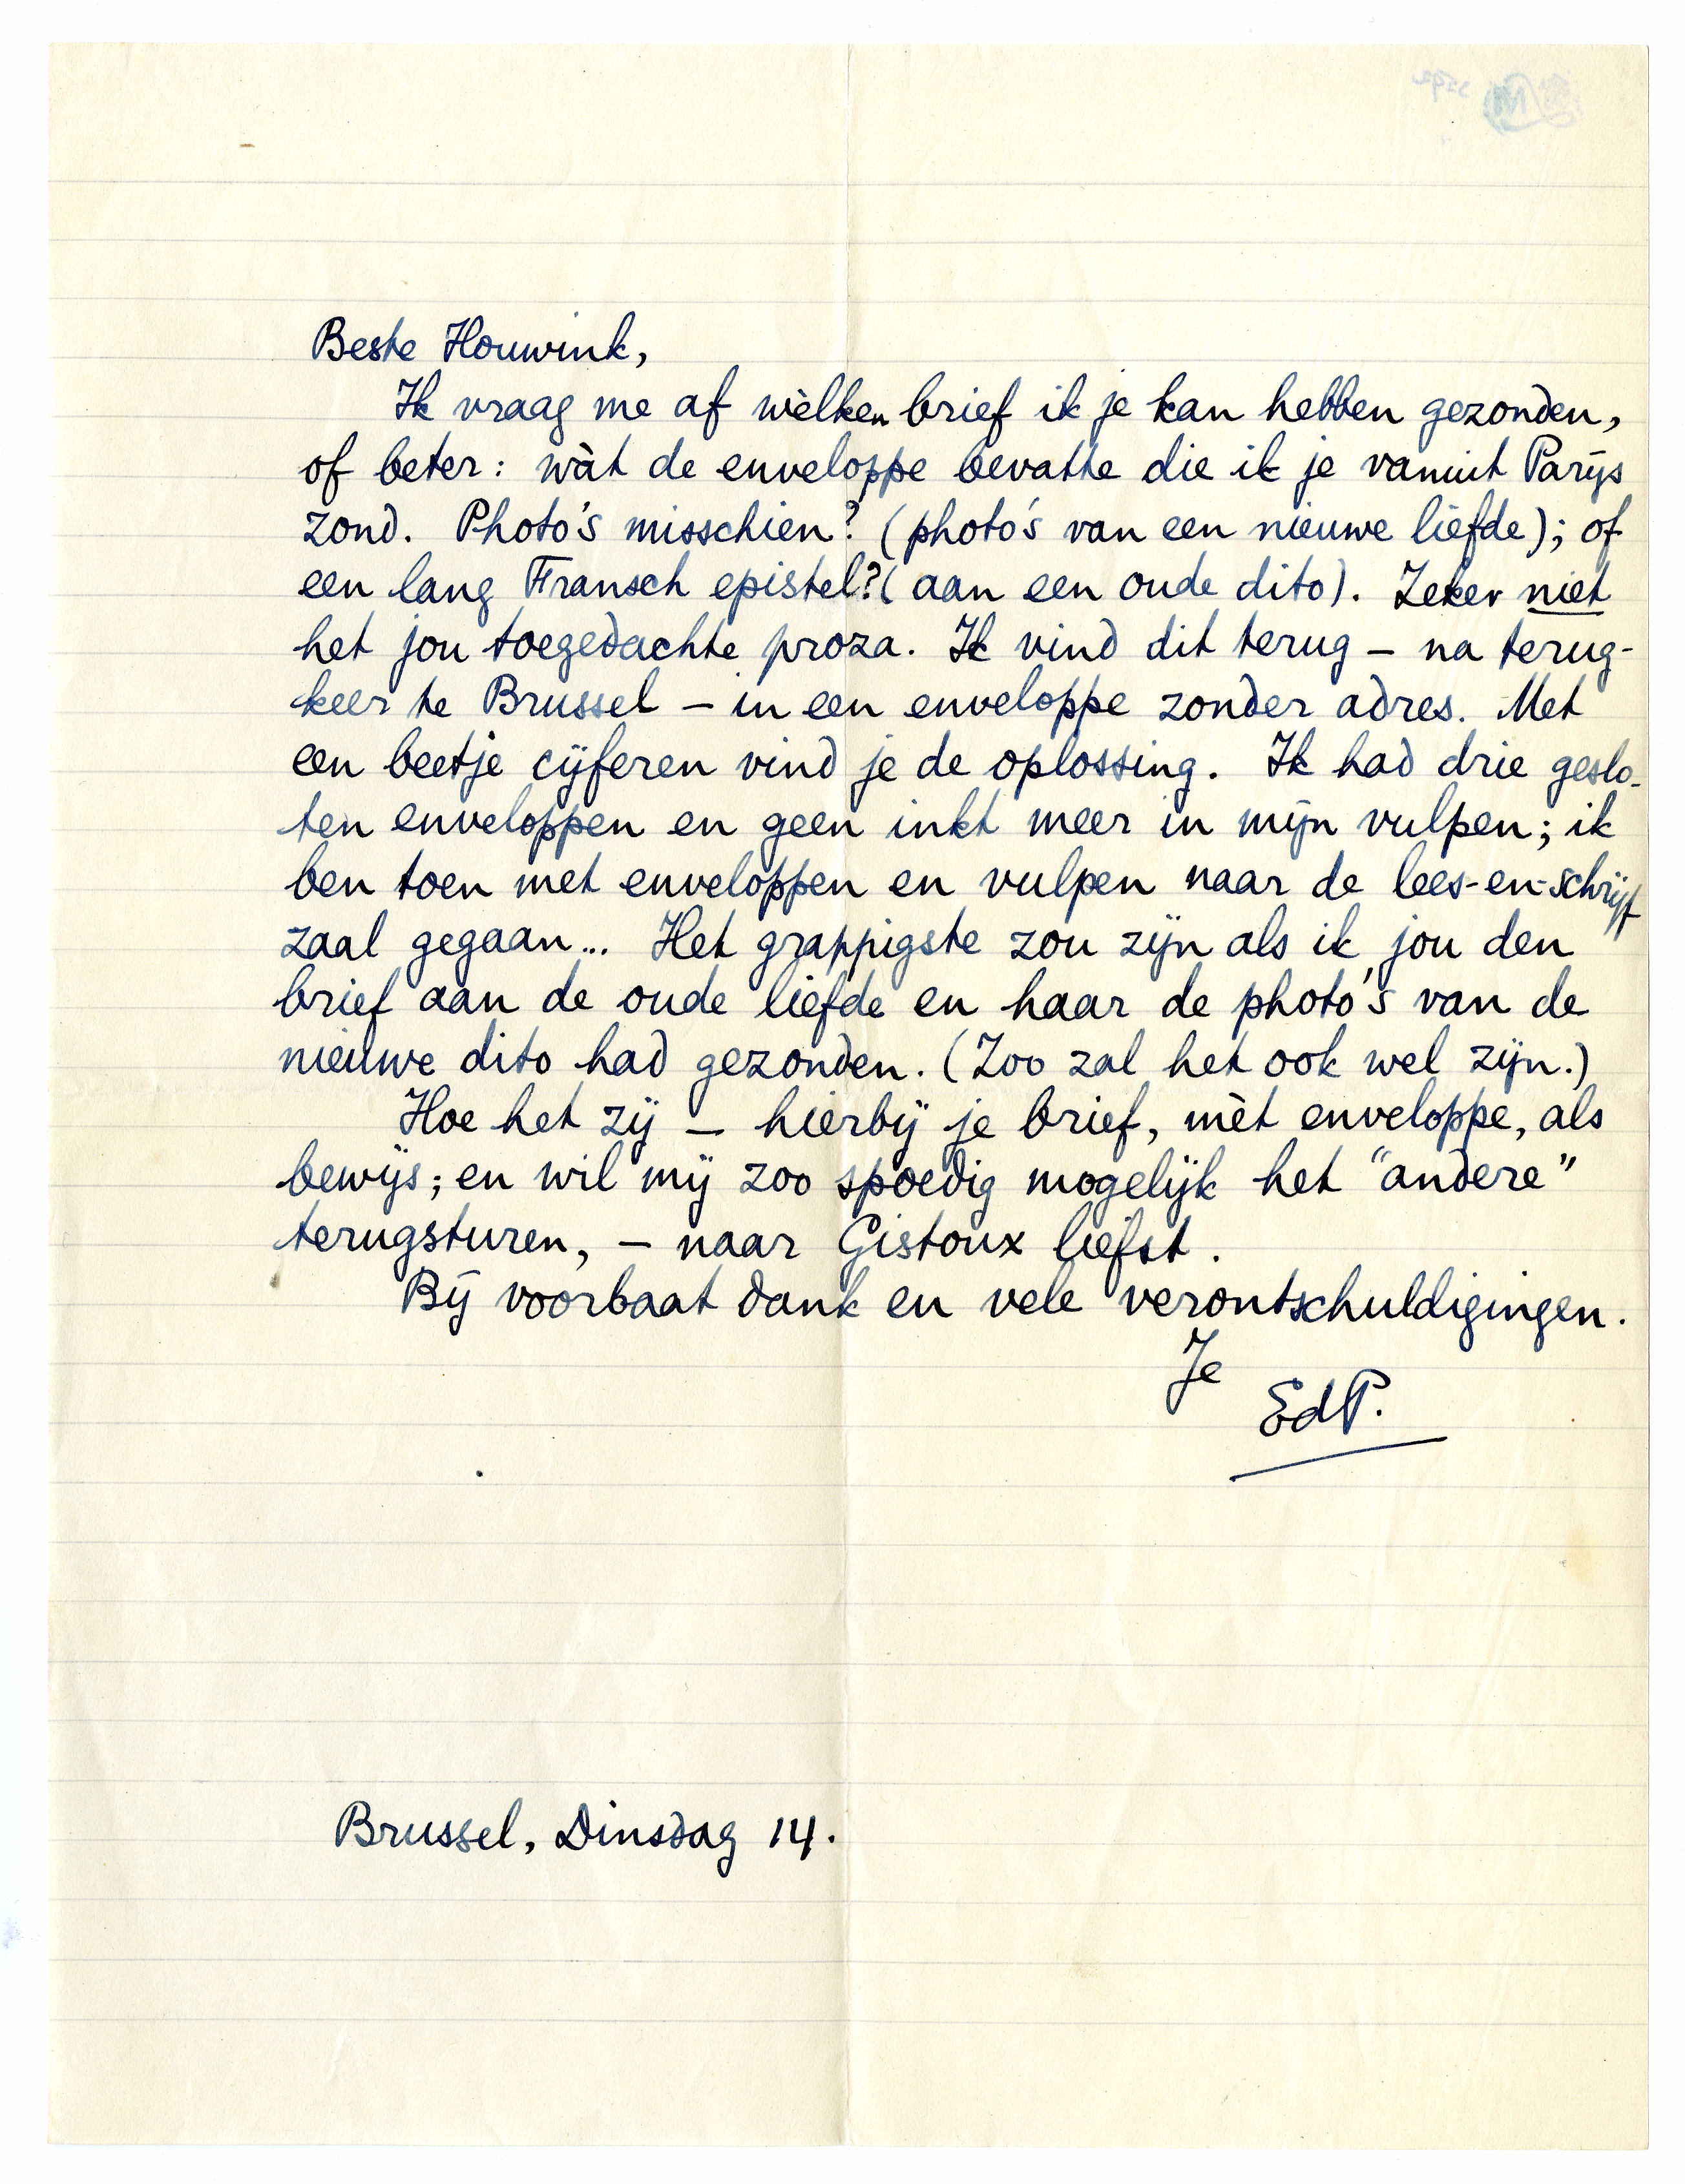 Beste Houwink,
Ik vraag me af wèlken brief ik je kan hebben gezonden,
of beter: wàt de enveloppe bevatte die ik je vanuit Parijs
zond. Photo's misschien? (photo's van een nieuwe liefde); of
een lang Fransch epistel? (aan een oude dito). Zeker niet
het jou toegedachte proza. Ik vind dit terug – na terug-
keer te Brussel – in een enveloppe zonder adres. Met
een beetje cijferen vind je de oplossing. Ik had drie geslo-
ten enveloppen en geen inkt meer in mijn vulpen; ik
ben toen met enveloppen en vulpen naar de lees-en-schrijf
zaal gegaan... Het grappigste zou zijn als ik jou den
brief aan de oude liefde en haar de photo's van de
nieuwe dito had gezonden. (Zoo zal het ook wel zijn.)
Hoe het zij – hierbij je brief, mèt enveloppe, als
bewijs; en wil mij zoo spoedig mogelijk het "andere"
terugsturen, – naar Gistoux liefst.
Bij voorbaat dank en vele verontschuldigingen.
Je
EdP.
Brussel, Dinsdag 14.